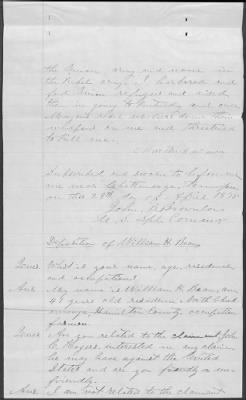 the Union army and none in
the Rebel army. I harbored and
fed Union refugees and aided
them in going to Kentucky and
on me and threatened
to kill me.
Subscribed and sworn to before me
near Chattanooga, Tennessee
on the 28th day of
John A Brownlow
U. S. Spl Commr
Deposition of William H. Bean
Ques. What is your name, age, residence
and occupation?
Ans. My name is William H. Bean, am
49 years old residence North Chickamauga
Hamilton County, occupation
farmer.
Ques. Are you related to the claimant John
C. Rogers, interested in any claim
he may have against the United
States and are you friendly or un
friendly.
Ans. I am not related to the claimant